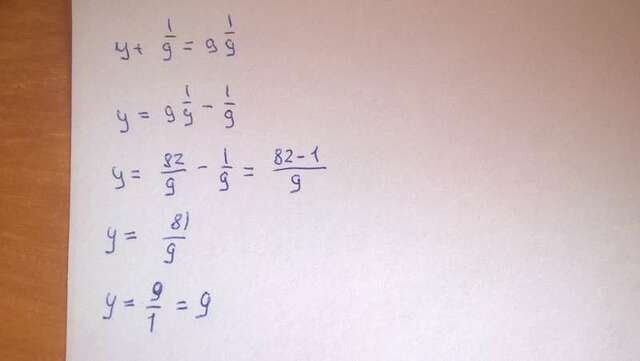 y + 1/9 = 9 1/9
y = 9 1/9 - 1/9
y = 82/9 - 1/9 = 82-1/9
y = 81/9
y = 9/1 = 9